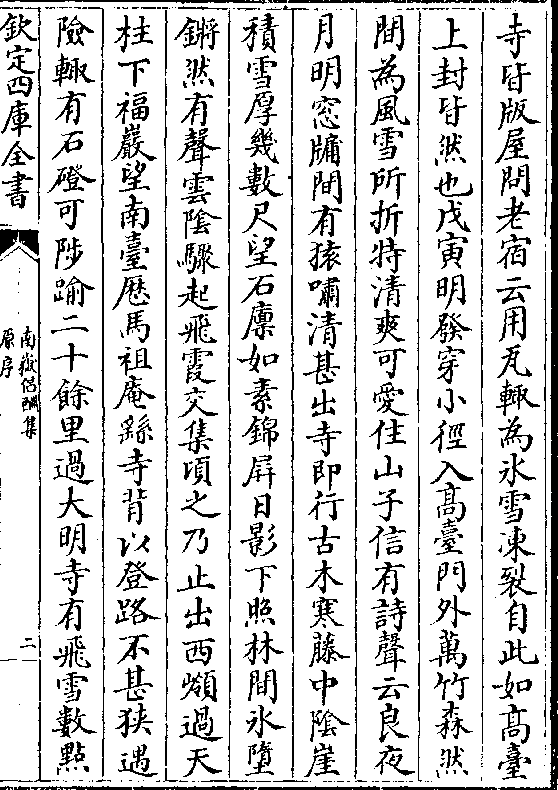 寺皆版屋問老宿云用瓦輙為氷雪凍裂自此如髙臺
上封皆然也戊寅明發穿小徑入髙臺門外萬竹森然
間為風雪所折特清爽可愛住山子信有詩聲云良夜
月明窓牖間有猿嘯清甚出寺即行古木寒藤中隂崖
積雪厚幾數尺望石廩如素錦屏日影下照林間氷墮
鏘然有聲雲隂驟起飛霞交集頃之乃止出西嶺過天
柱下福巖望南臺厯馬祖庵繇寺背以登路不甚狹遇
險輙有石磴可陟踰二十餘里過大明寺有飛雪數㸃
欽定四庫全書
南嶽倡酬集
原序
二